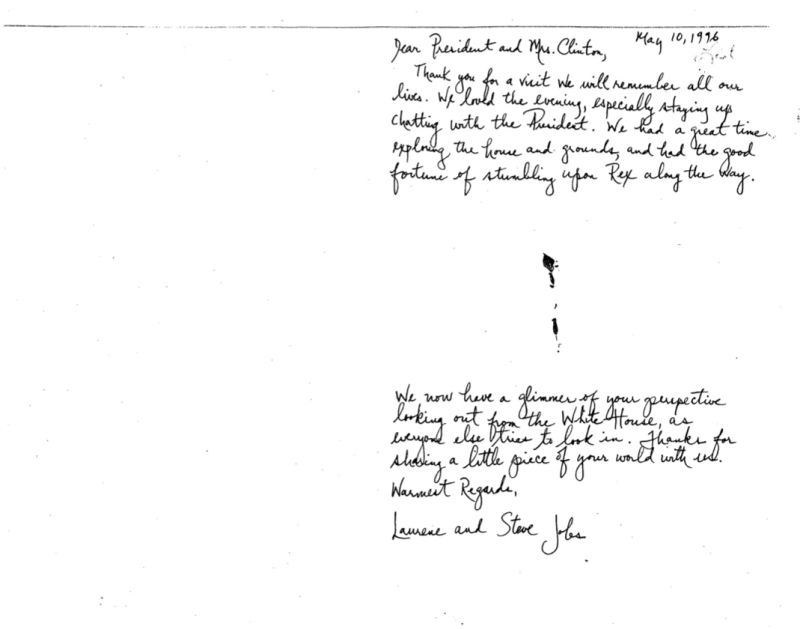 May 10, 1996
Dear President and Mrs. Clinton,
Thank you for a visit we will remember all our
lives. We loved the evening, especially staying up
chatting with the President. We had a great time
exploring the house and grounds, and had the good
fortune of stumbling upon Rex along the way.
We now have a glimmer of your perspective
looking out from the White House, as
everyone else tries to look in. Thanks for
sharing a little piece of your world with us.
Warmest Regards,
Laurene and Steve Jobs